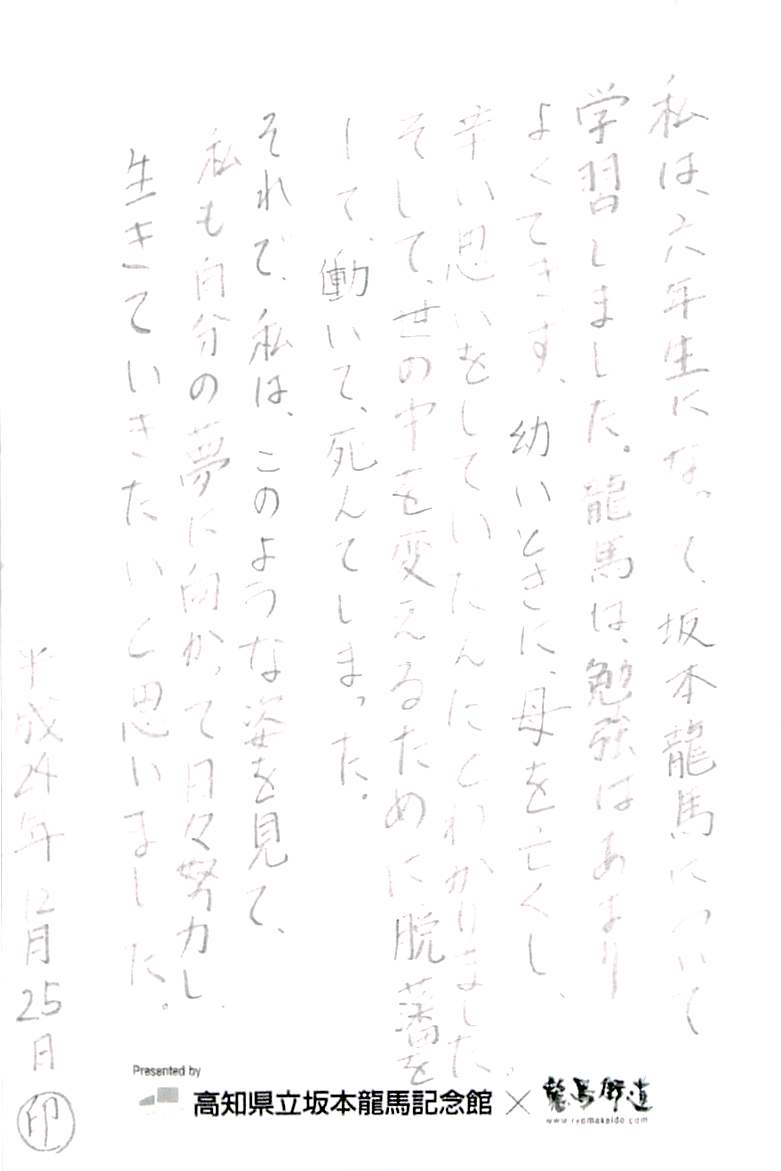 私は、六年生になって、坂本龍馬について
学習しました。龍馬は、勉強はあまり
よくできず、幼いときに、母を亡くし、
辛い思いをしていたんだとわかりました。
そして、世の中を変えるために脱藩を
して、働いて、死んでしまった。
それで、私は、このような姿を見て、
私も自分の夢に向かって日々努力し、
生きていきたいと思いました。
平成24年12月25日 印
Presented by
高知県立坂本龍馬記念館 × 龍馬街道
www.ryomakaido.com